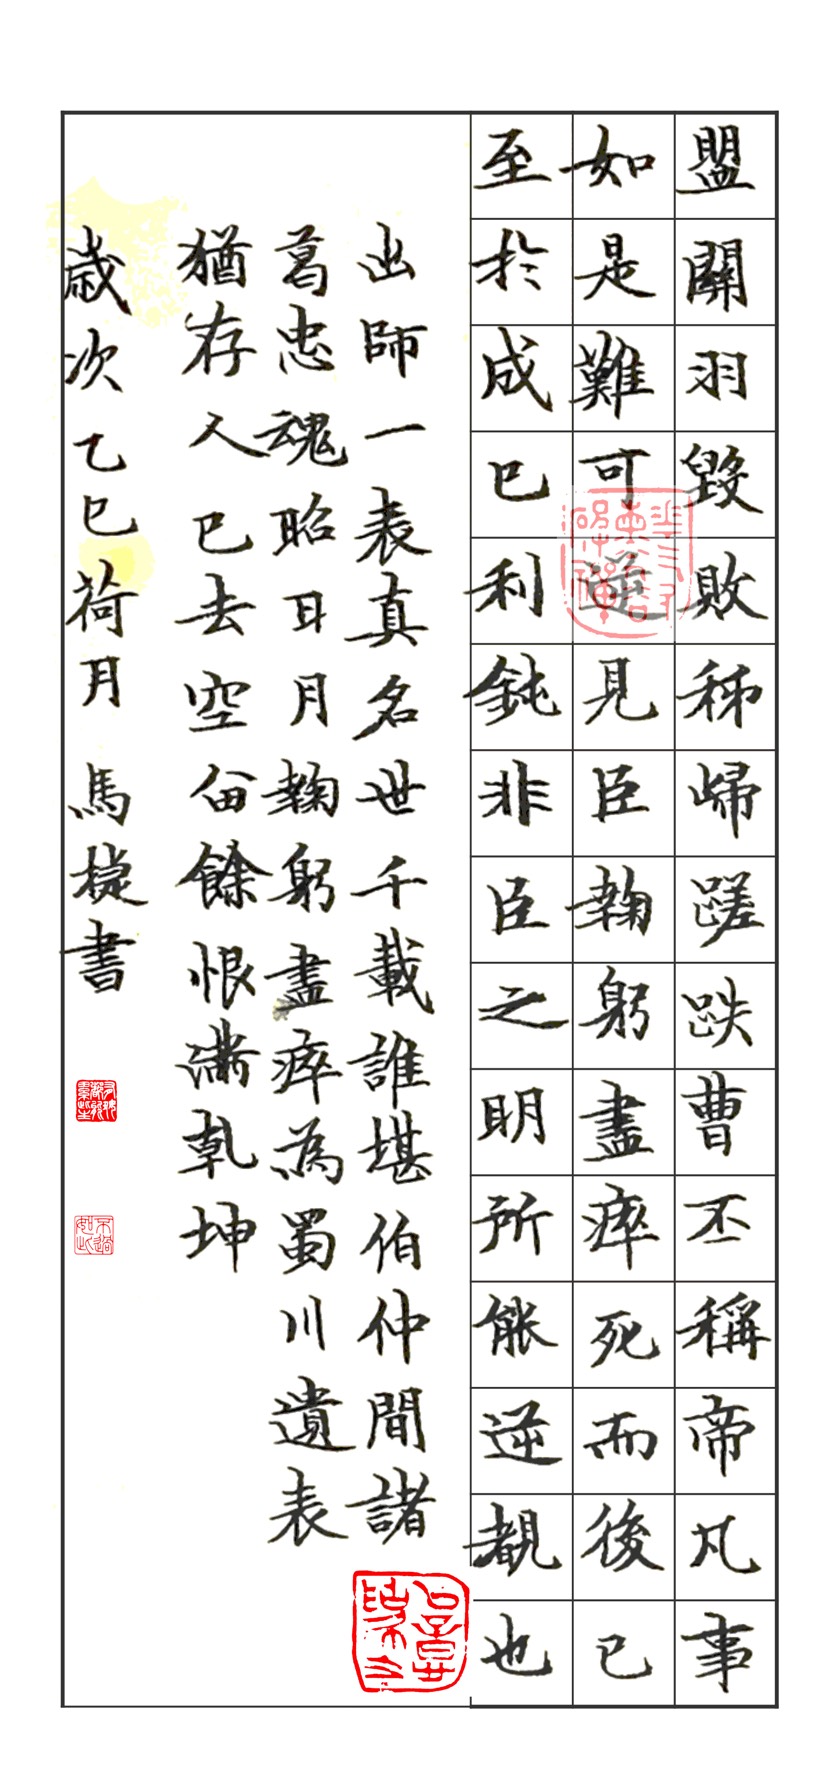 盟關羽毀敗秭歸蹉跌曹丕稱帝凡事
如是難可逆見臣鞠躬盡瘁死而後已
至於成巳利鈍非臣之明所能逆覩也
出師一表真名世千載誰堪伯仲間諸
葛忠魂昭日月鞠躬盡瘁為蜀川遺表
猶存人已去空留餘恨滿乾坤
歲次乙巳荷月馬捷書